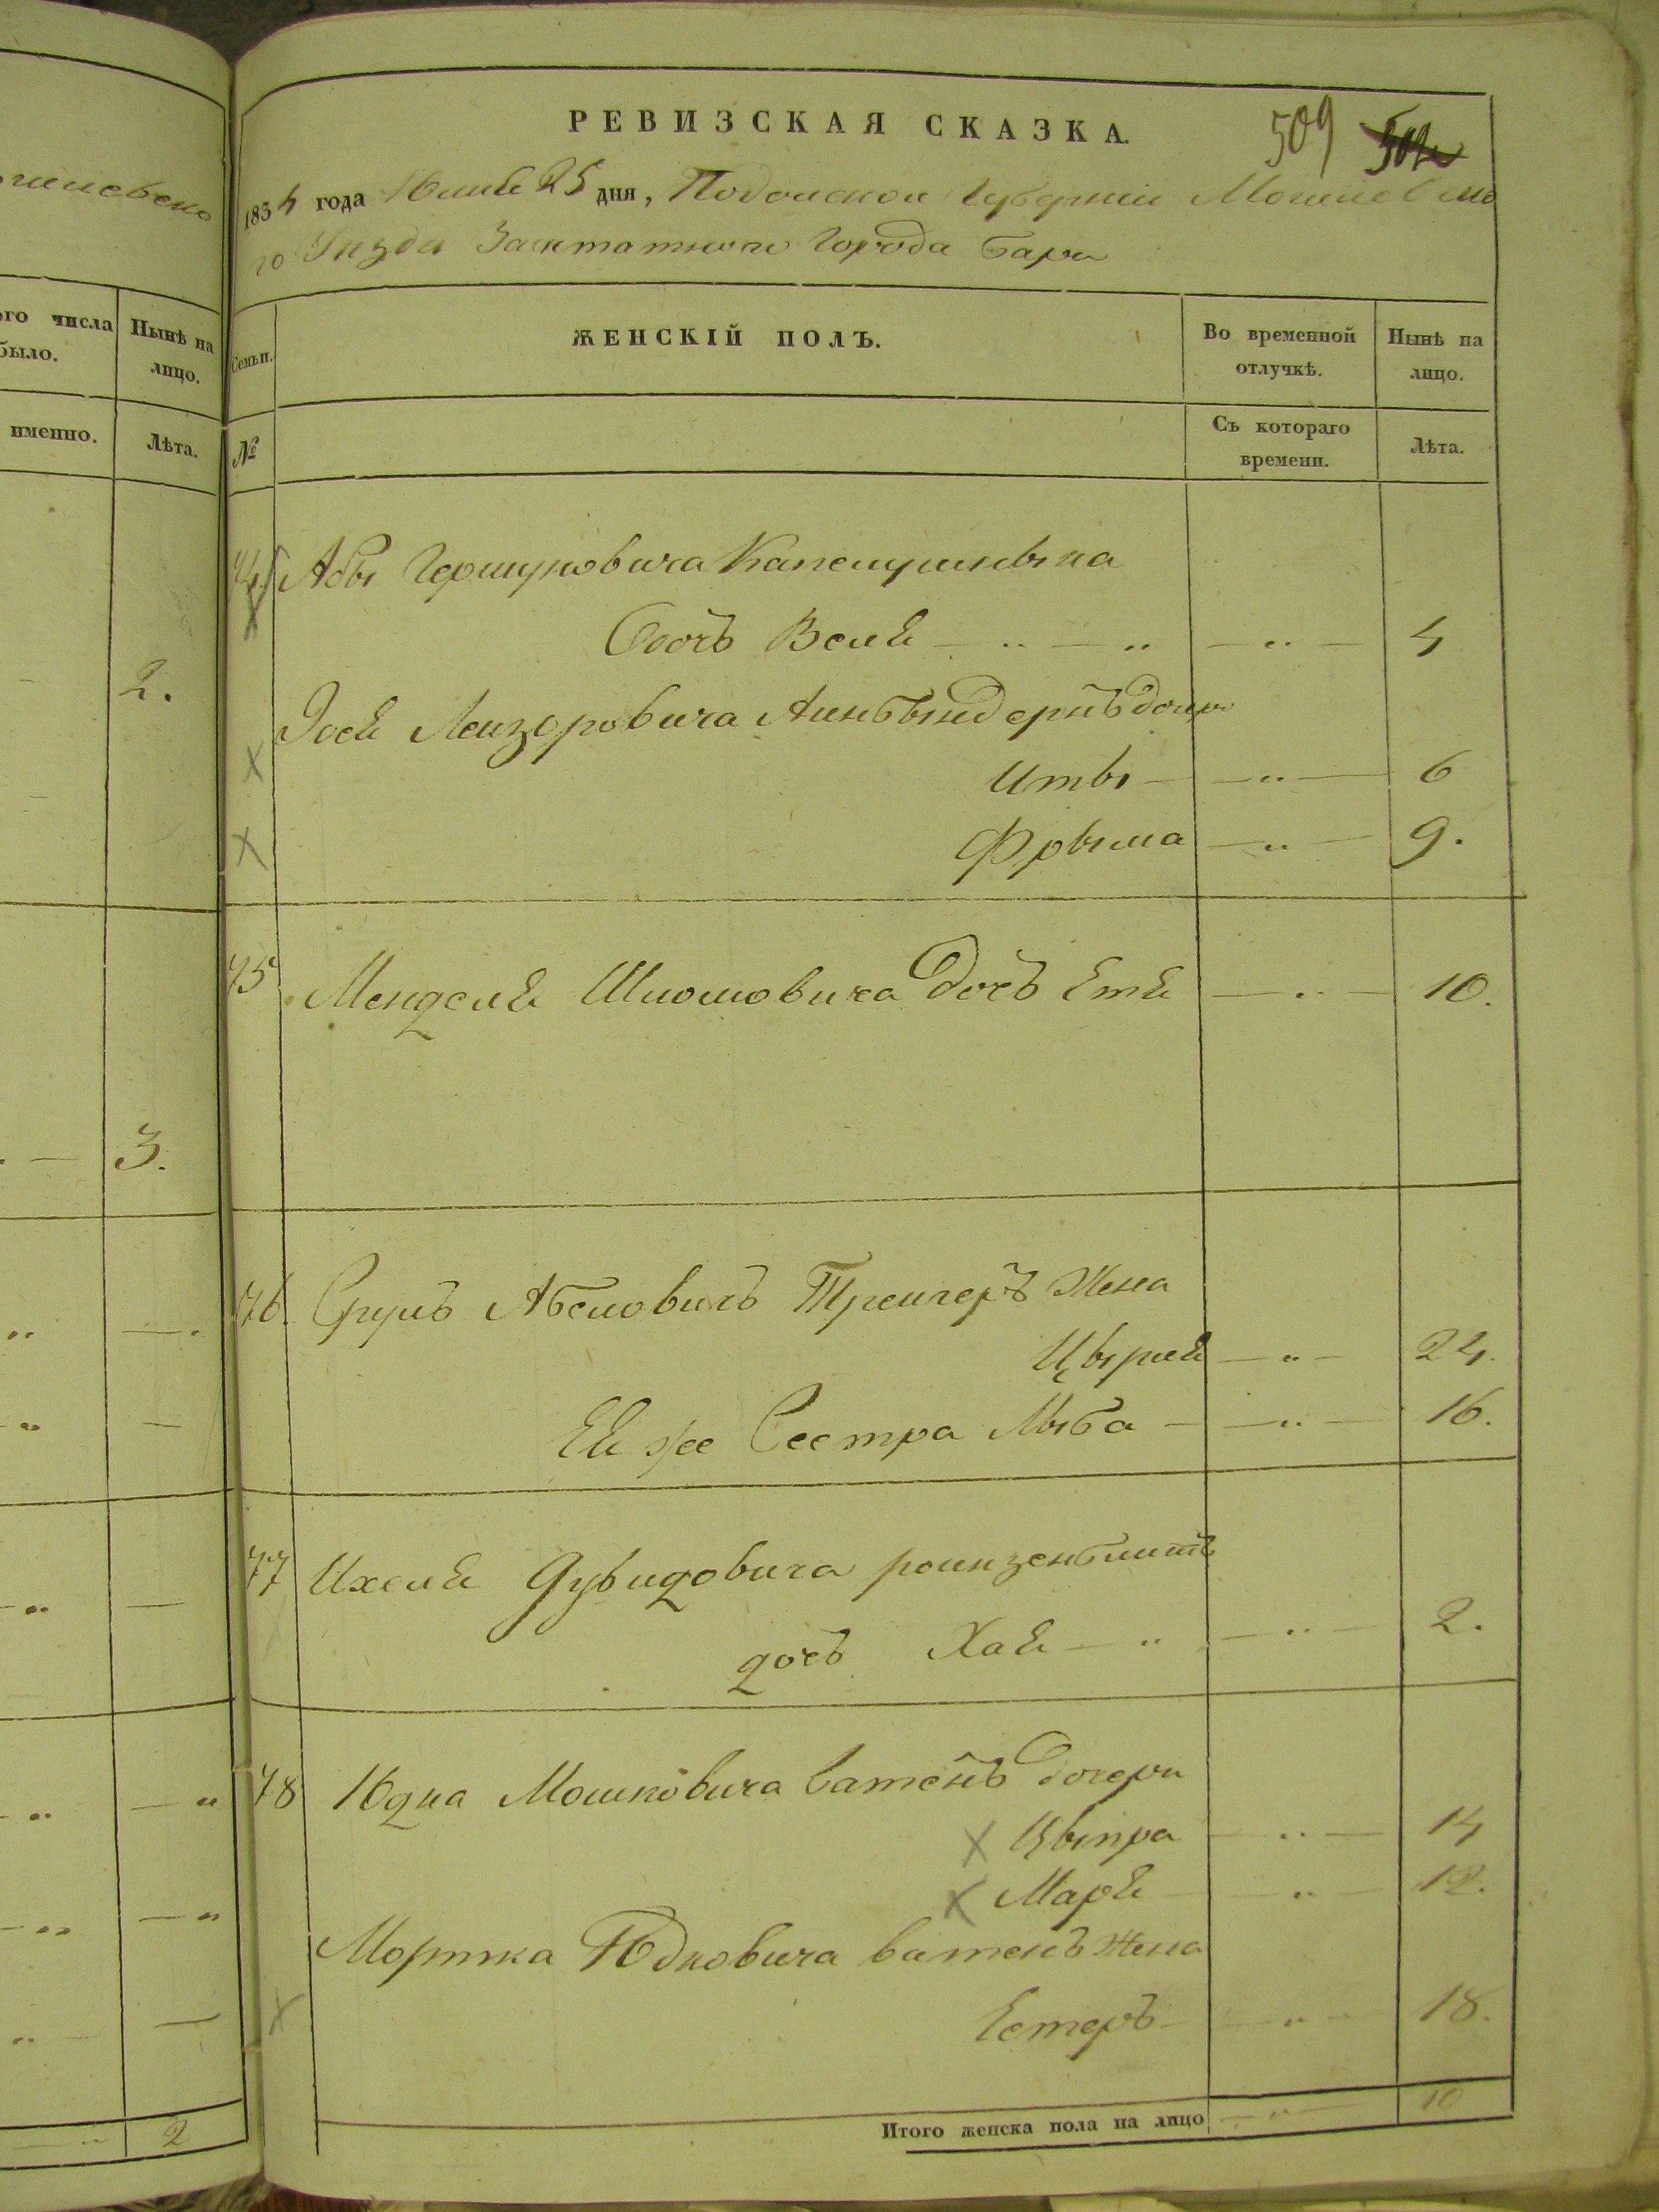 гилевско
ого числа было.
Нынѣ на лицо.
именно.
Лѣта.
2.
3.
2
РЕВИЗСКАЯ СКАЗКА.
509
1834 года Юния 25 дня, Подольской Губернии Могилевско
го Уѣзда Заштатного Города Бара
Семьи.
ЖЕНСКІЙ ПОЛЪ.
Во временной отлучкѣ.
Нынѣ на лицо.
№
Съ котораго времени.
Лѣта.
Абы Гершковича
Дочь 4
Лейзоровича дочь
Иты 6
Фрыма 9.
75 Менделя Шлiомовича Дочь Етя 10.
76. Сруль Абелевичъ Трейгеръ Жена
24.
Ея же Сестра Лыба 16.
77 Ихеля Дувидовича
дочь Хая 2.
78 Юдка Мошковича Ватенъ Дочери
Цыпра 14
Маря 12.
Мортка Юдковича Ватенъ Жена
Естеръ 18.
Итого женска пола на лицо 10